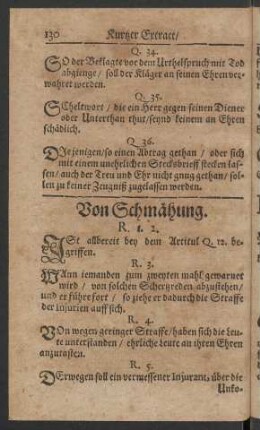 130 Kurtzer Extract/
Q. 34.
SO der Beklagte vor dem Urthelspruch mit Tod
abgienge/ soll der Kläger an seinen Ehren ver-
wahret werden.
Q. 35.
SCheltwort/ die ein Herr gegen seinen Diener
oder Unterthan thut/ seynd keinem an Ehren
schädlich.
Q. 36.
DIejenigen/ so einen Abtrag gethan/ oder sich
mit einem unehrlichen Steckbrieff stecken las-
sen/ auch der Treu und Ehr nicht gnug gethan/ sol-
len zu keiner Zeugniß zugelassen werden.
Von Schmähung.
R. 1. 2.
ISt allbereit bey dem Articul Q. 12. be-
griffen.
R. 3.
WAnn jemanden zum zweyten mahl gewarnet
wird/ von solchen Schertzreden abzustehen/
und er führet fort/ so ziehe er dadurch die Straffe
der Injurien auff sich.
R. 4.
VOn wegen geringer Straffe/ haben sich die Leu-
te unterstanden/ ehrliche Leute an ihren Ehren
anzutasten.
R. 5.
DErwegen soll ein vermessener Injurant, über die
Unko-